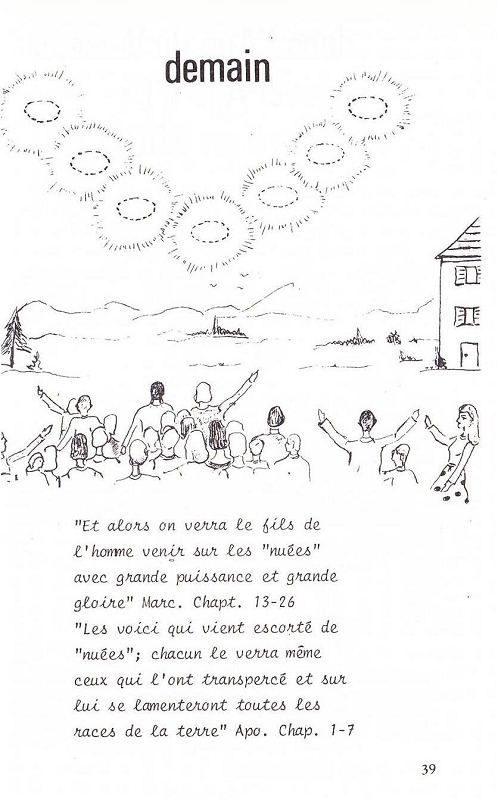 demain
"Et alors on verra le fils de
l'homme venir sur les "nuées"
avec grande puissance et grande
gloire" Marc. Chapt. 13-26
"Les voici qui vient escorté de
"nuées"; chacun le verra même
ceux qui l'ont transpercé et sur
lui se lamenteront toutes les
races de la terre" Apo. Chap. 1-7
39